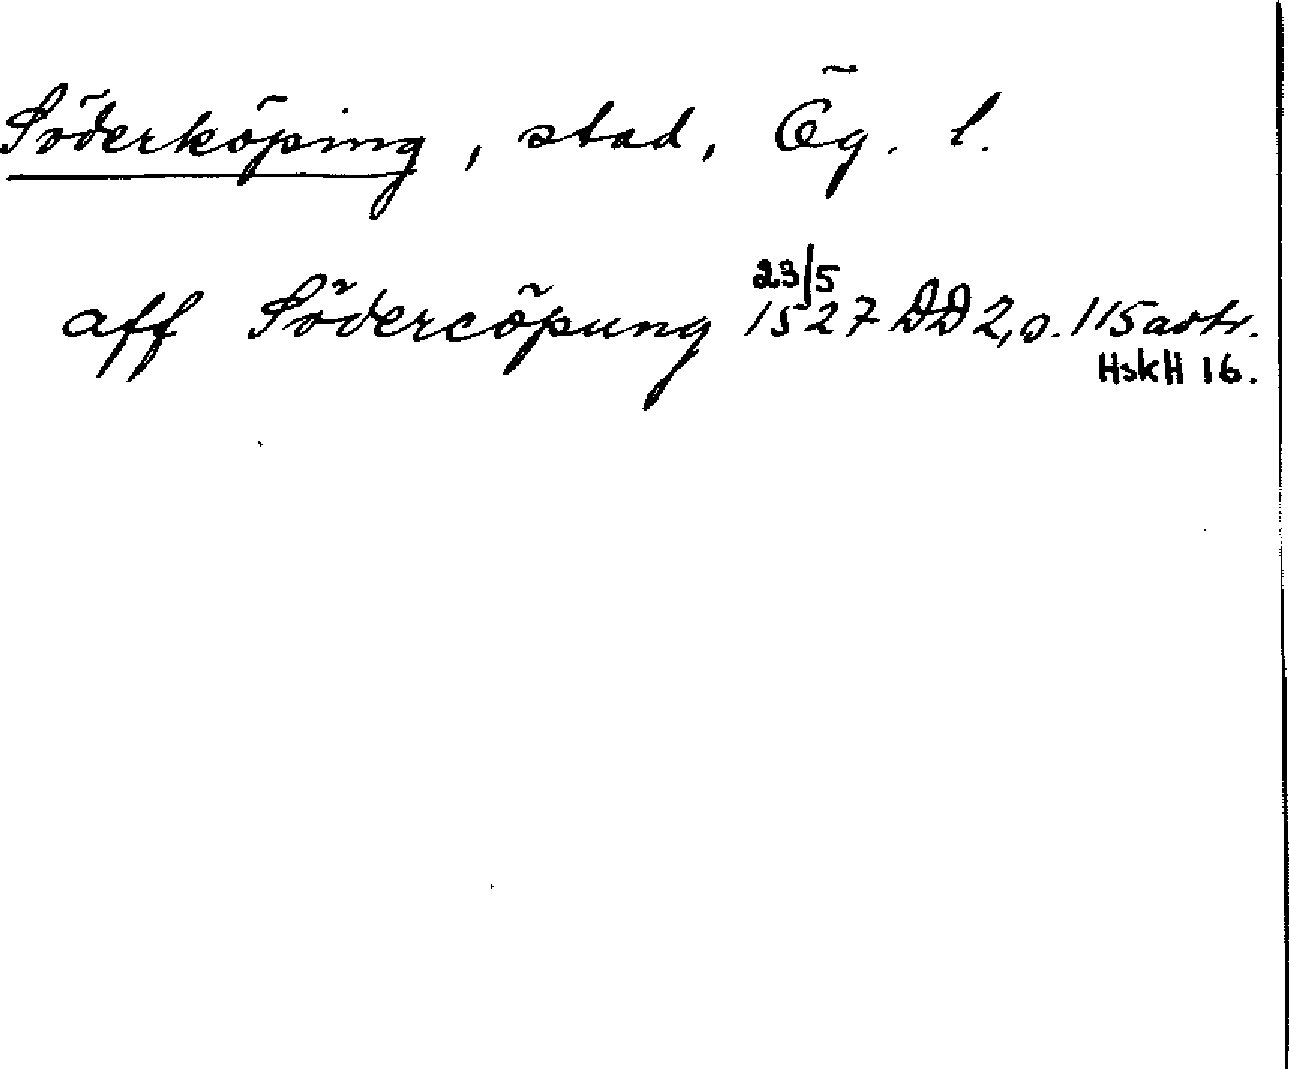 Söderköping, stad, Ög. l.
aff Södercöpung 23/5 1527 DD 2, s. 115 avtr.
HskH 16.